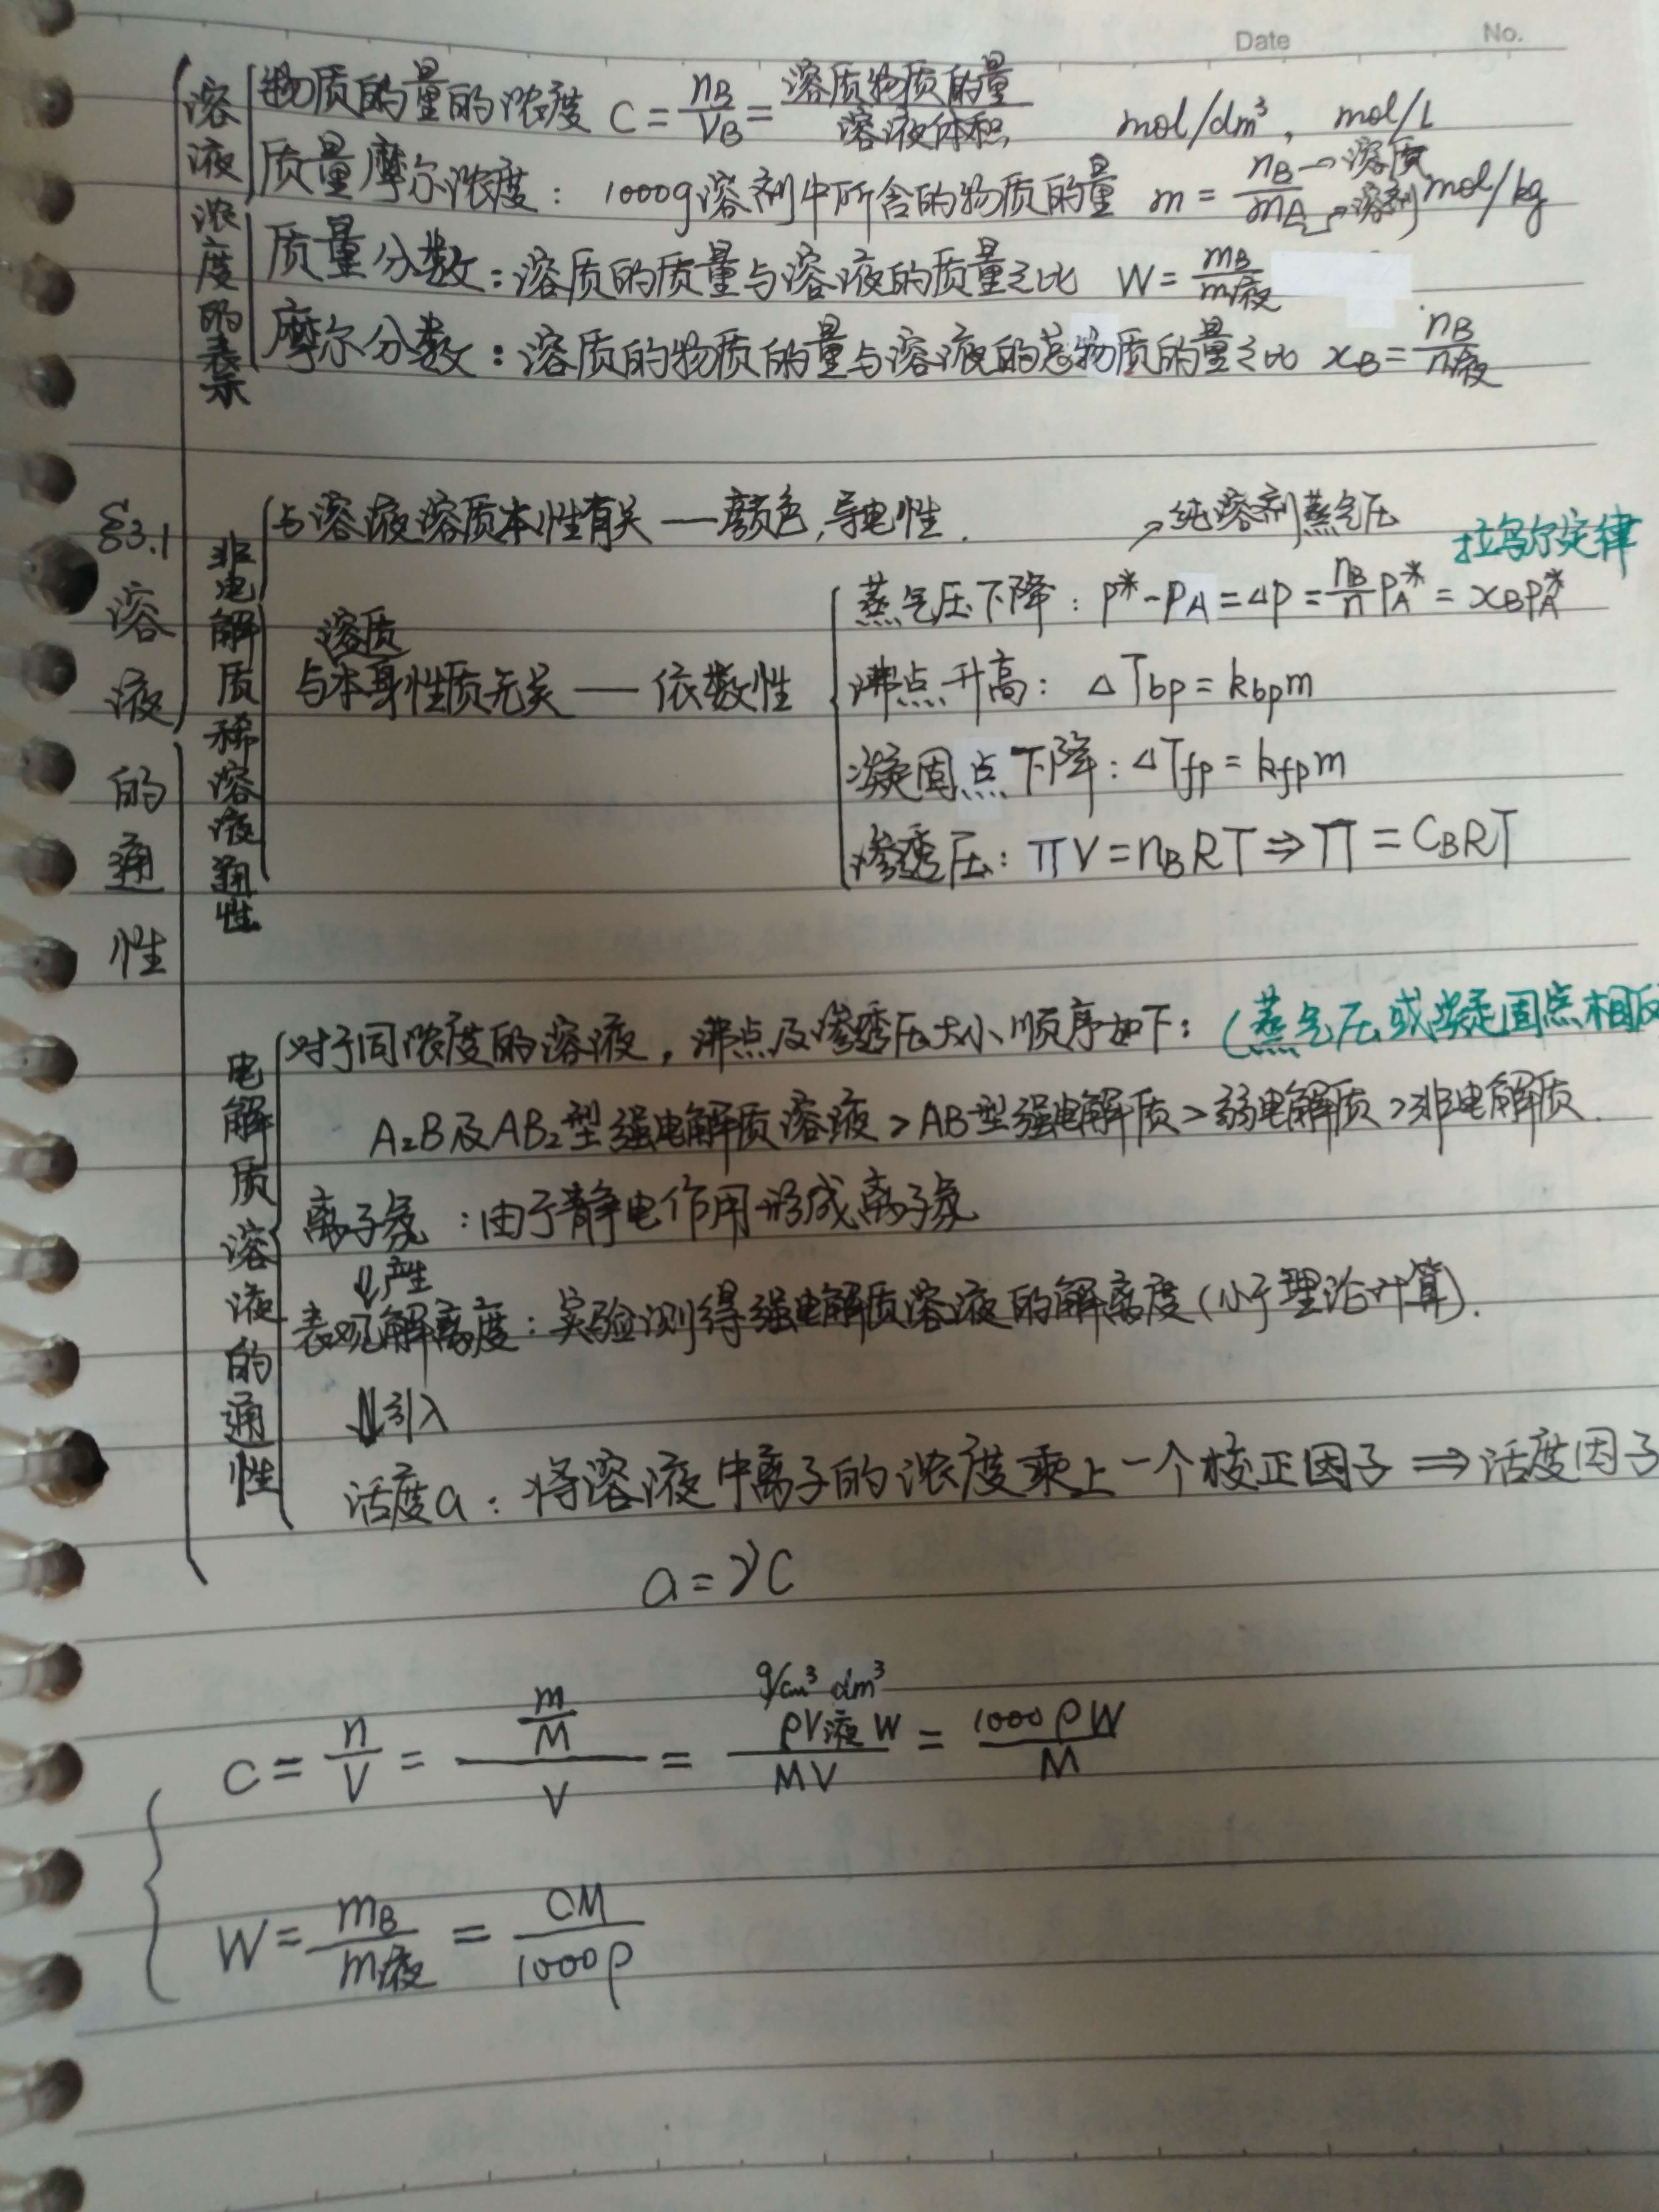 Date No.
§3.1溶液的通性
溶液浓度的表示
物质的量的浓度 C = nB/VB = 溶质物质的量/溶液体积 mol/dm³, mol/L
质量摩尔浓度: 1000g溶剂中所含的物质的量 m = nB/mA mol/kg
→溶质
→溶剂
质量分数: 溶质的质量与溶液的质量之比 W = mB/m液
摩尔分数: 溶质的物质的量与溶液的总物质的量之比 xB = nB/n液
非电解质稀溶液通性
与溶液溶质本性有关 — 颜色, 导电性.
→纯溶剂蒸气压
拉乌尔定律
溶质
与本身性质无关 — 依数性
蒸气压下降: P* - PA = ΔP = nB/n PA* = xBPA*
沸点升高: ΔTbp = kbpm
凝固点下降: ΔTfp = kfpm
渗透压: πV = nBRT ⇒ π = CBRT
电解质溶液的通性
对于同浓度的溶液, 沸点及渗透压大小顺序如下: (蒸气压或凝固点相反
A₂B及AB₂型强电解质溶液 > AB型强电解质 > 弱电解质 > 非电解质.
离子氛: 由于静电作用形成离子氛
⇓产生
表观解离度: 实验测得强电解质溶液的解离度(小于理论计算).
⇓引入
活度a: 将溶液中离子的浓度乘上一个校正因子 ⇒ 活度因子
a = γC
g/cm³ dm³
C = n/V = (m/M)/V = ρV液W/MV = 1000ρW/M
W = mB/m液 = CM/1000ρ